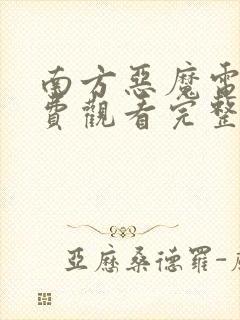 南方惡魔雷
費觀看完整
亞歷桑德羅-